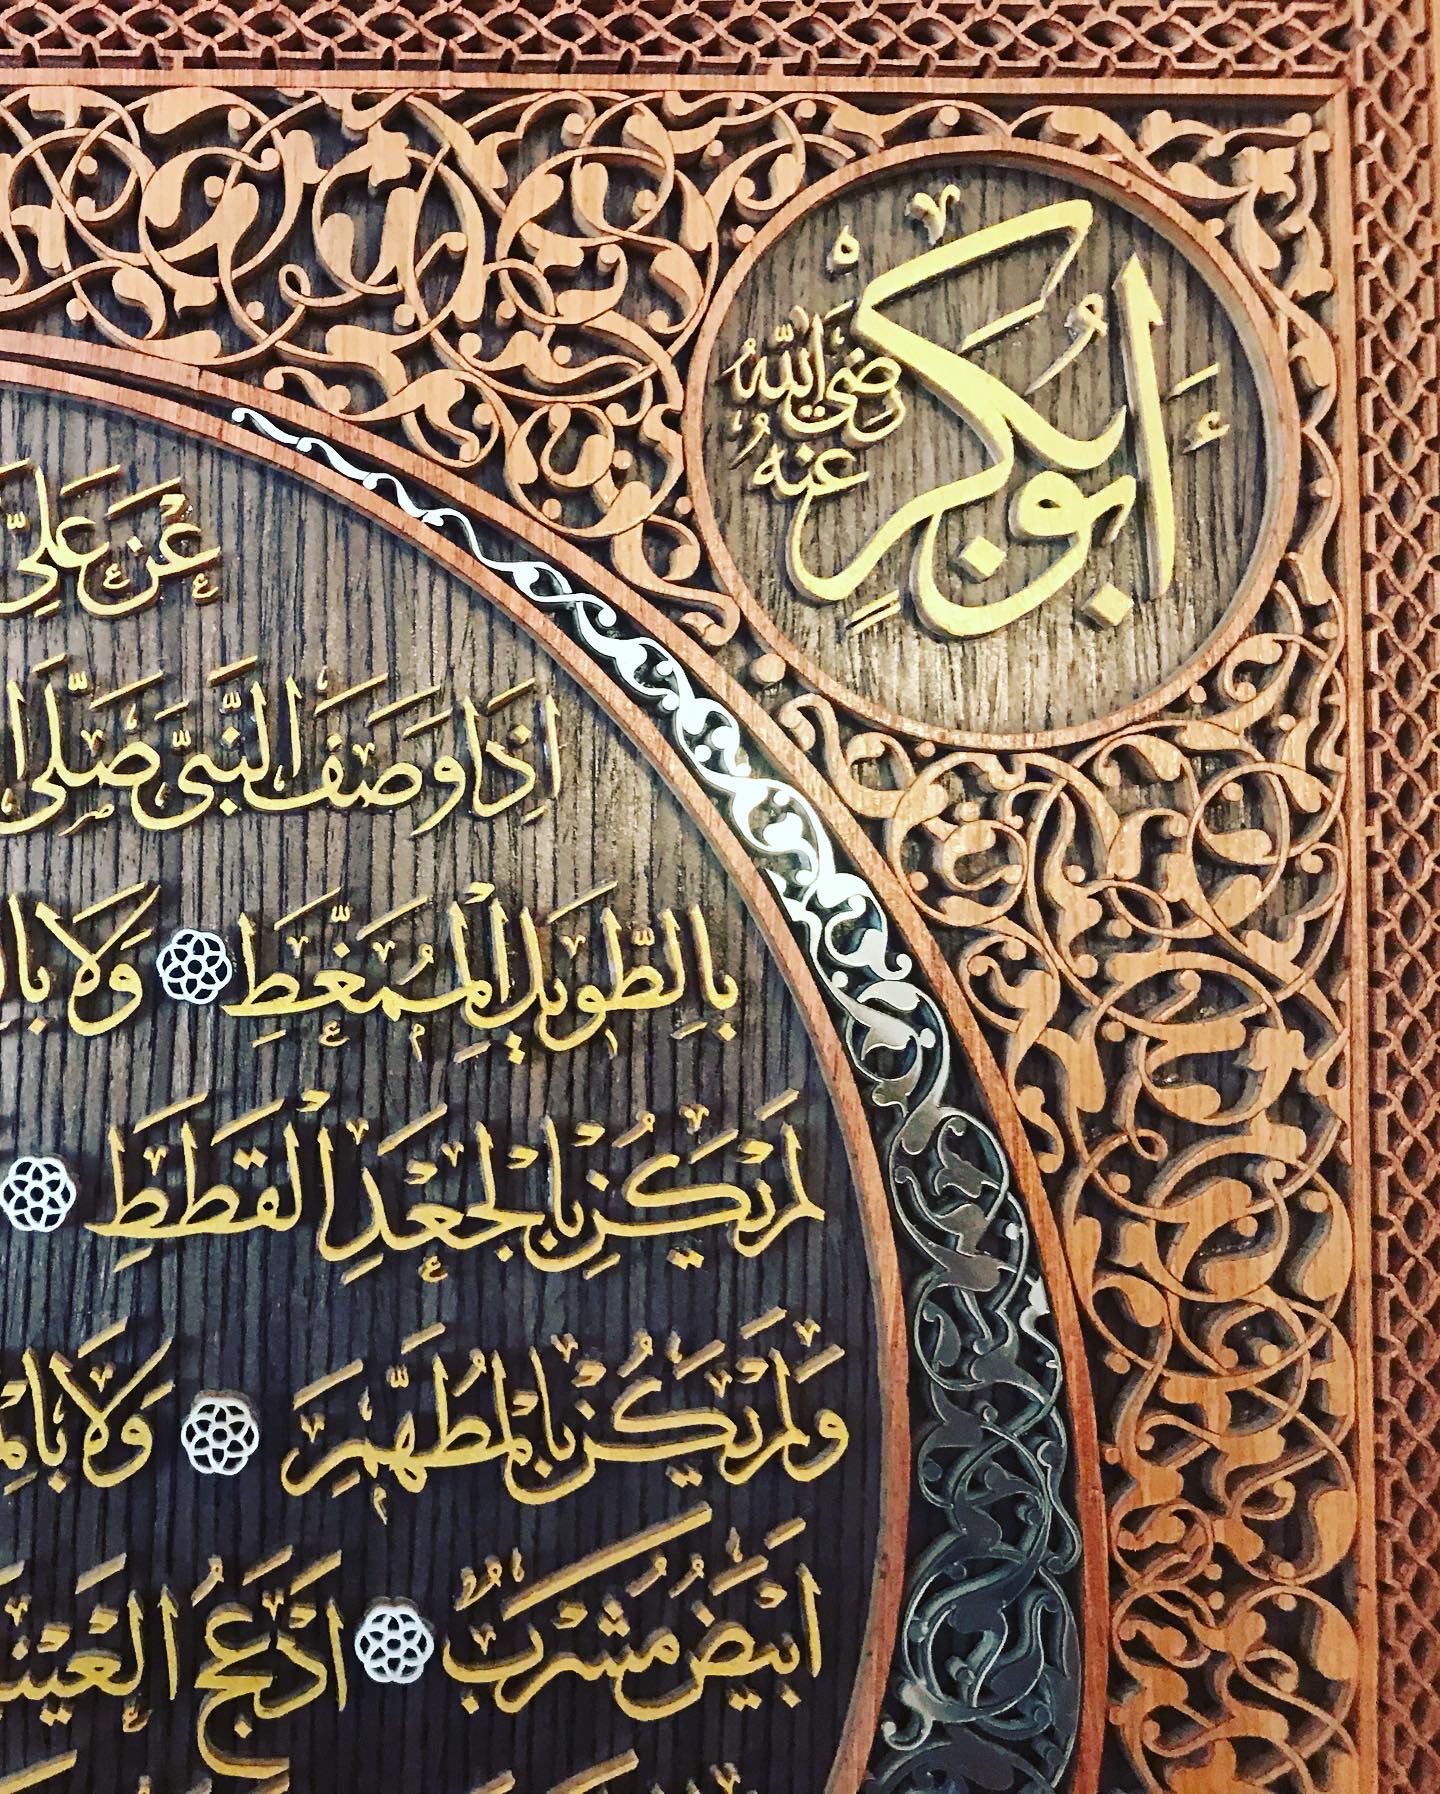 أَبُو بَكْرٍ
رَضِيَ اللّٰهُ
عَنْهُ
عَنْ عَلِيٍّ
اِذَا وَصَفَ النَّبِيَّ صَلَّى
بِالطَّوِيلِ الْمُمَّغِطِ وَلَا
لَمْ يَكُنْ بِالْجَعْدِ الْقَطَطِ
وَلَمْ يَكُنْ بِالْمُطَهَّمِ وَلَا
اَبْيَضُ مُشْرَبٌ اَدْعَجُ